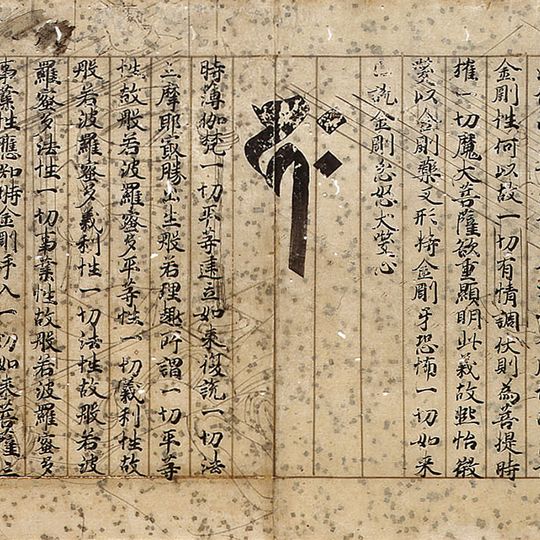 金剛性何以故一切有情調伏則為菩提時
摧一切魔大菩薩欲重顯明此義故熙怡微
笑以金剛藥叉形持金剛牙恐怖一切如来
已說金剛忿怒大笑心
時薄伽梵一切平等建立如来復說一切法
三摩耶最勝出生般若理趣所謂一切平等
性故般若波羅蜜多平等性一切義利性故
般若波羅蜜多義利性一切法性故般若波
羅蜜多法性一切事業性故般若波羅蜜多
事業性應知時金剛手入一切如来菩薩三